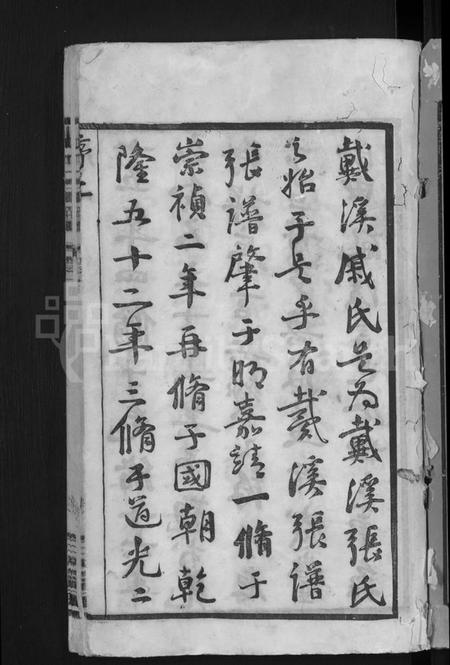 戴溪戚氏是为戴溪張氏
之始于是乎有戴溪張譜
張譜肇于明嘉靖一脩于
崇禎二年再脩于國朝乾
隆五十二年三脩于道光二